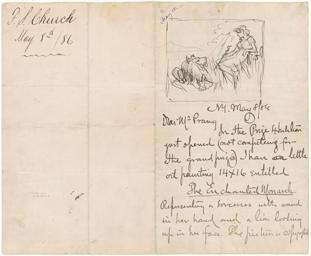 F. S. Church
May 8th/86
N.Y. May 8/86
Dear Mr Prang
In the Prize Exhibition
just opened (not competing for
the grand prize) I have a little
oil painting 14x16 entitled
The Enchanted Monarch
Representing a sorceress with wand
in her hand and a lion looking
up in her face. The picture is copyrighted